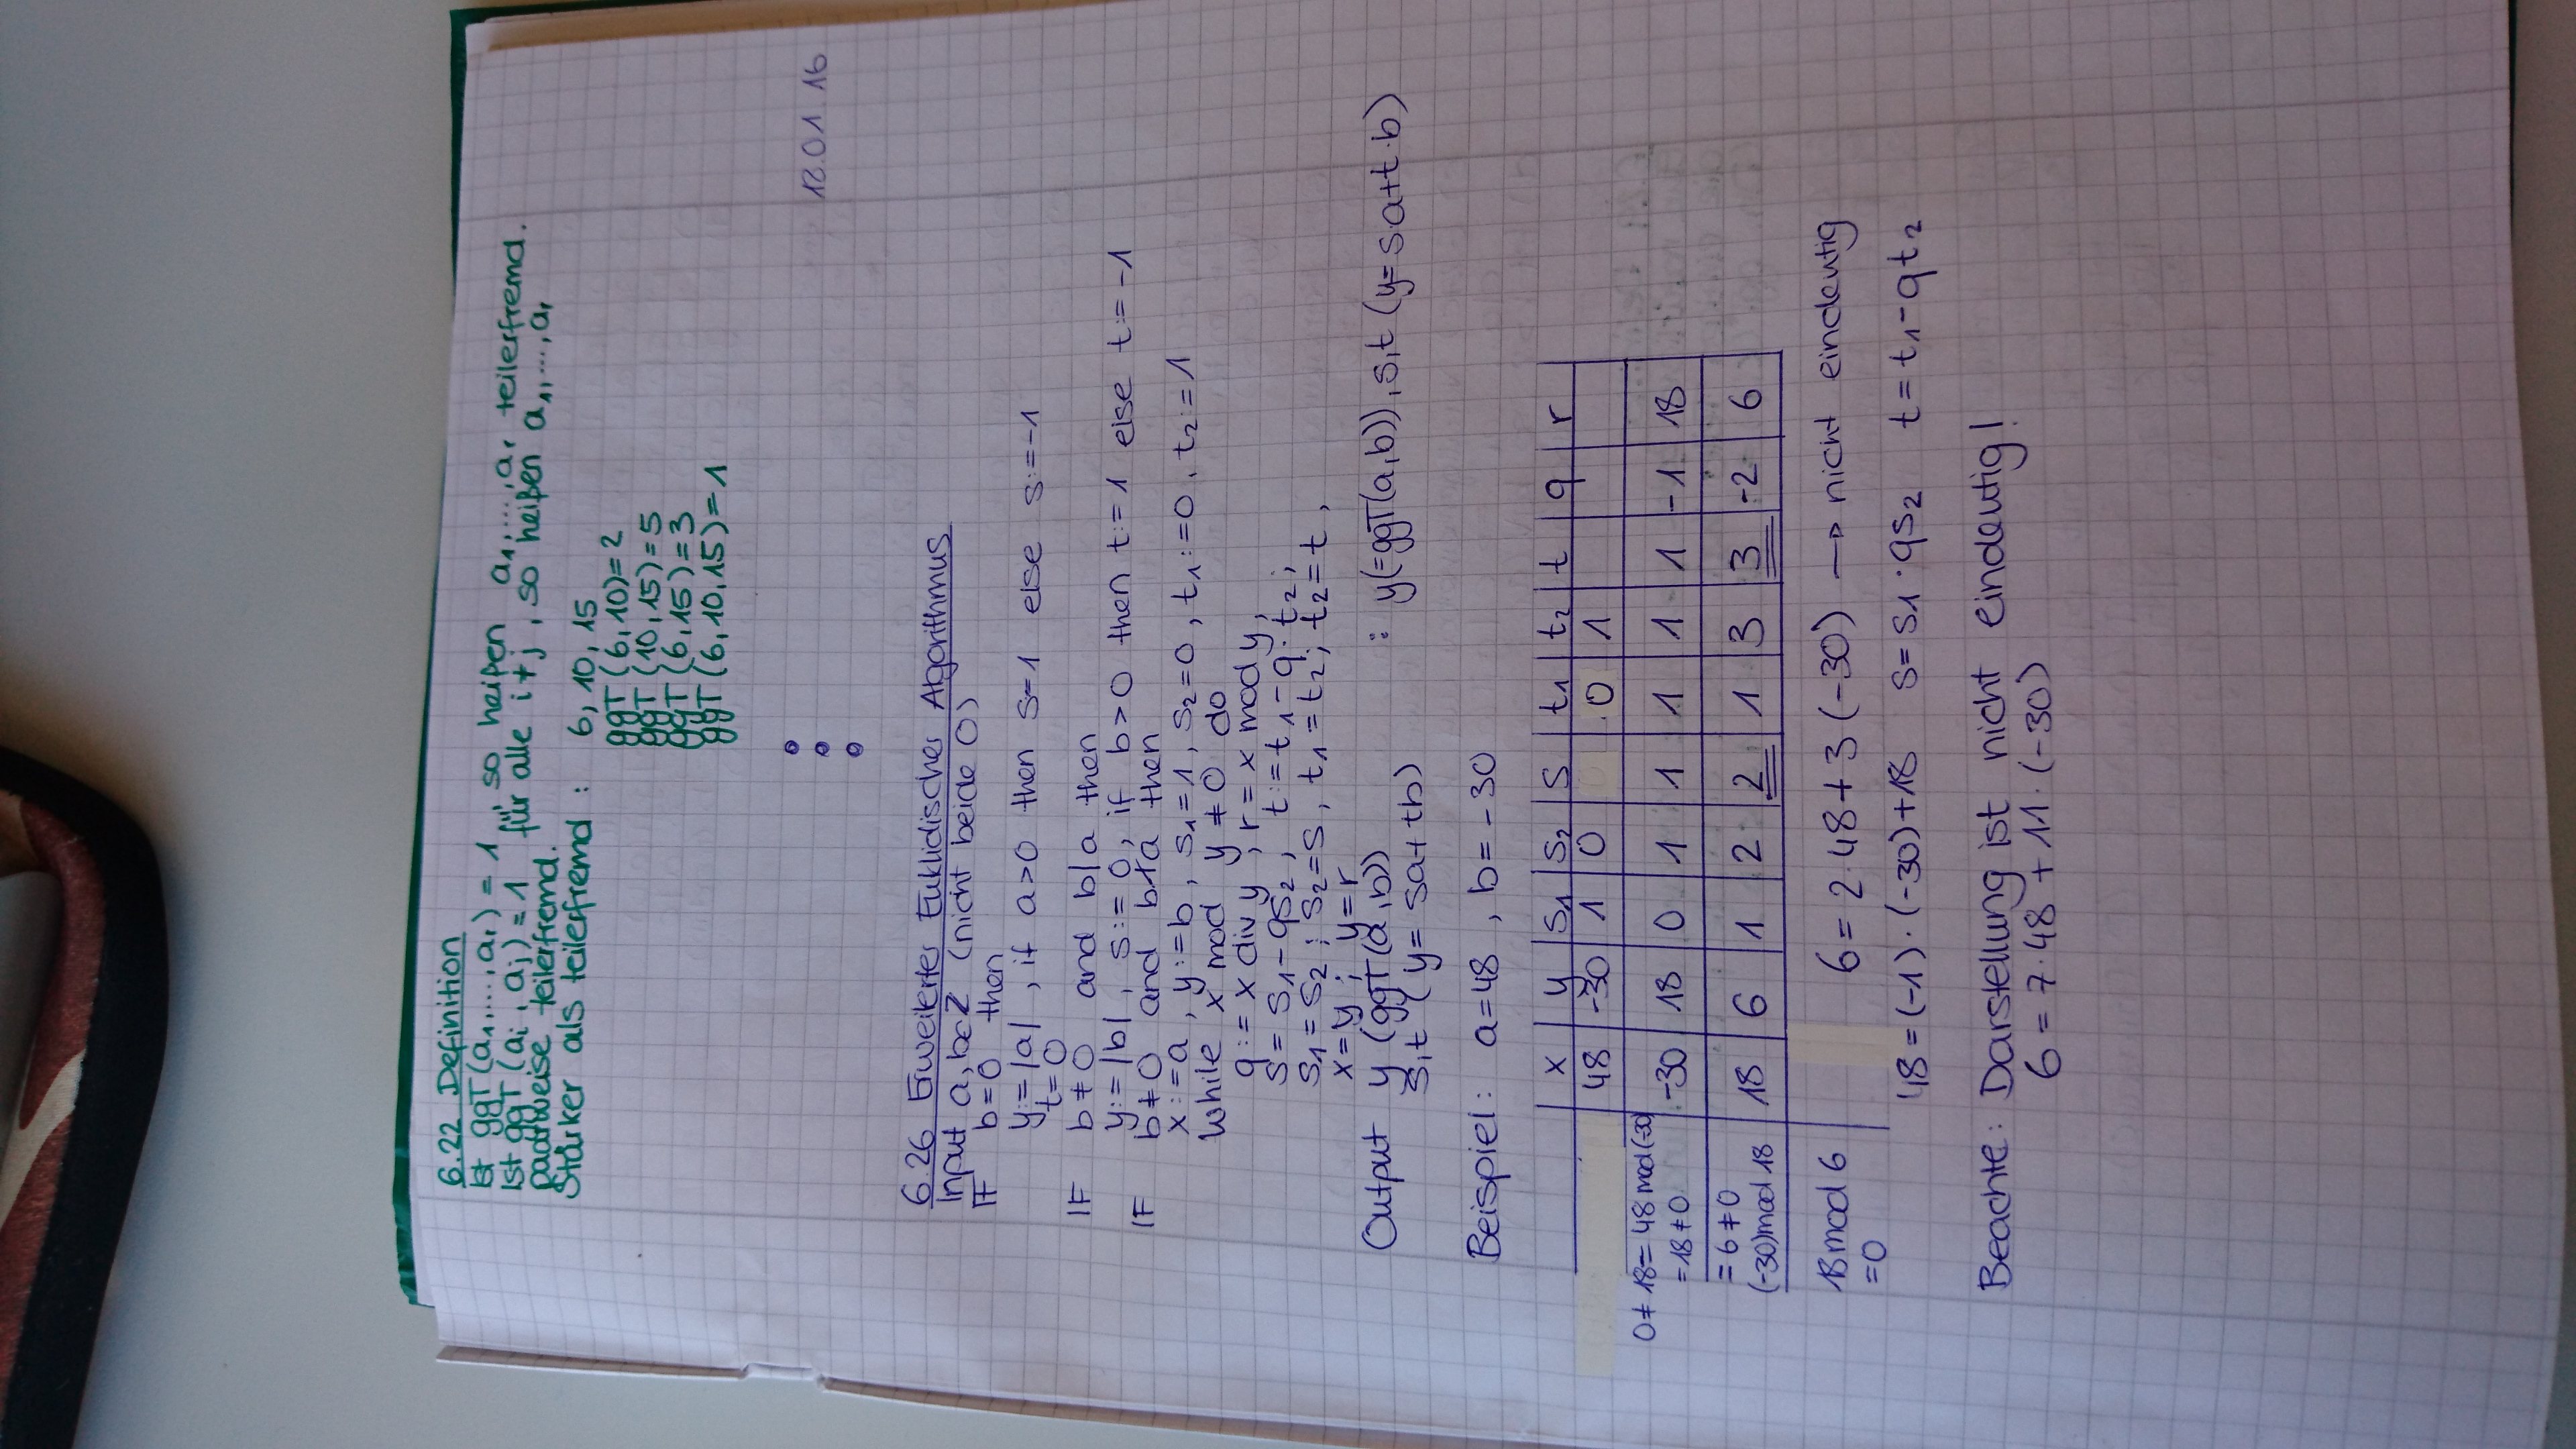 6.22 Definition
Ist ggT(a₁,...,aᵣ) = 1, so heißen a₁,...,aᵣ teilerfremd.
Ist ggT(aᵢ, aⱼ) = 1 für alle i ≠ j, so heißen a₁,...,aᵣ
paarweise teilerfremd.
Stärker als teilerfremd : 6, 10, 15
ggT(6,10)=2
ggT(10,15)=5
ggT(6,15)=3
ggT(6,10,15)=1
.01.16
6.26 Erweiterter Euklidischer Algorithmus
Input a, b∈Z (nicht beide 0)
IF b=0 then
y:=|a| , if a>0 then s=1 else s:=-1
t=0
IF b≠0 and b|a then
y:=|b| , s:=0, if b>0 then t:=1 else t:=-1
IF b≠0 and b∤a then
x:=a, y:=b, s₁=1, s₂=0, t₁:=0, t₂:=1
While x mod y ≠ 0 do
q:= x div y ; r = x mod y,
s= s₁-qs₂, t:=t₁-q·t₂;
s₁=s₂; s₂=s, t₁=t₂; t₂=t,
x=y; y=r
Output y (ggT(a,b)) : y(=ggT(a,b)), s,t (y= s·a+t·b)
s,t (y= sa+tb)
Beispiel: a=48 , b= -30
x y s₁ s₂ s t₁ t₂ t q r
48 -30 1 0 0 1
0≠18= 48 mod(-30)
=18≠0 -30 18 0 1 1 1 1 1 -1 18
=6≠0
(-30)mod 18 18 6 1 2 2 1 3 3 -2 6
18 mod 6 6=2·48+3(-30) → nicht eindeutig
=0
48=(-1)·(-30)+18 s= s₁·qs₂ t=t₁-qt₂
Beachte: Darstellung ist nicht eindeutig!
6=7·48+11·(-30)